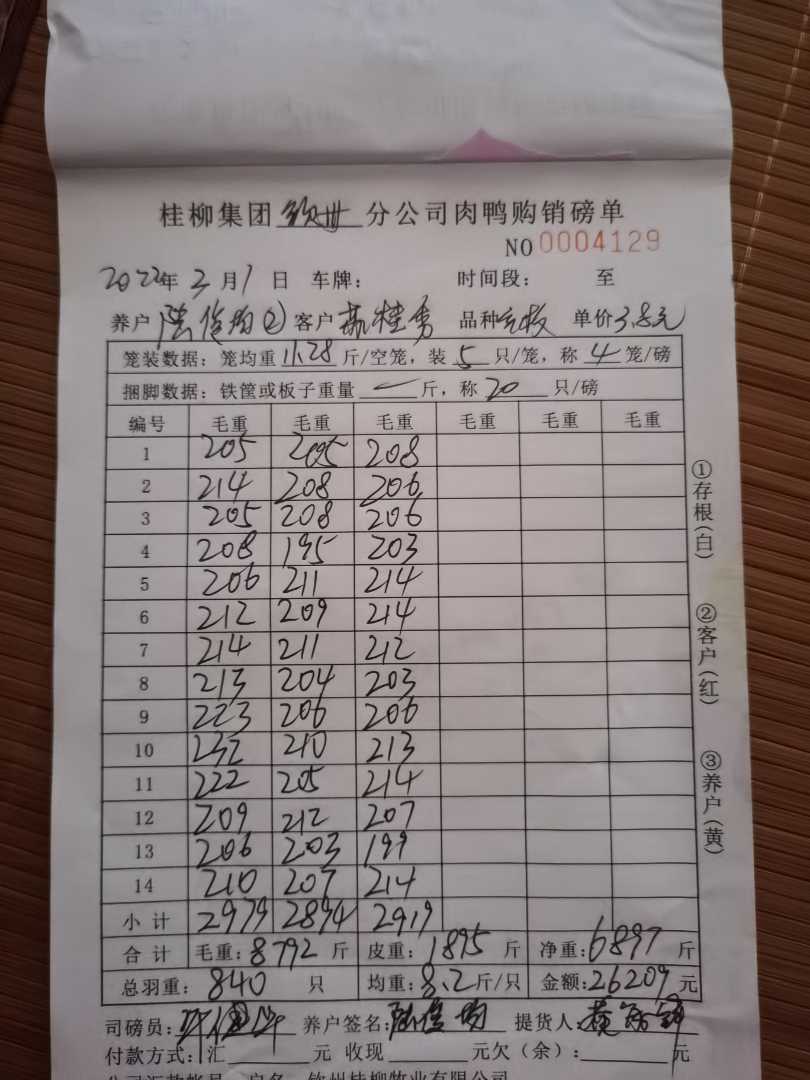 桂柳集团 钦州 分公司肉鸭购销磅单
NO 0004129
2022年3月1日 车牌: 时间段: 至
养户 陆俊均② 客户 桂勇 品种 单价 3.8元
笼装数据:笼均重 11.28 斤/空笼,装 5 只/笼,称 4 笼/磅
捆脚数据:铁筐或板子重量 一 斤,称 20 只/磅
编号 毛重 毛重 毛重 毛重 毛重 毛重
1 205 205 208
2 214 208 206
3 205 208 206
4 208 195 203
5 206 211 214
6 212 209 214
7 214 211 212
8 213 204 203
9 223 206 206
10 232 210 213
11 222 205 214
12 209 212 207
13 206 203 199
14 210 207 214
小计 2979 2894 2919
合计 毛重:8792 斤 皮重:1895 斤 净重:6897 斤
总羽重:840 只 均重:8.2斤/只 金额:26209元
司磅员: 养户签名:陆俊均 提货人:
付款方式:汇 元 收现 元欠(余): 元
公司汇款帐号 户名 钦州桂柳牧业有限公司
①存根(白)
②客户(红)
③养户(黄)